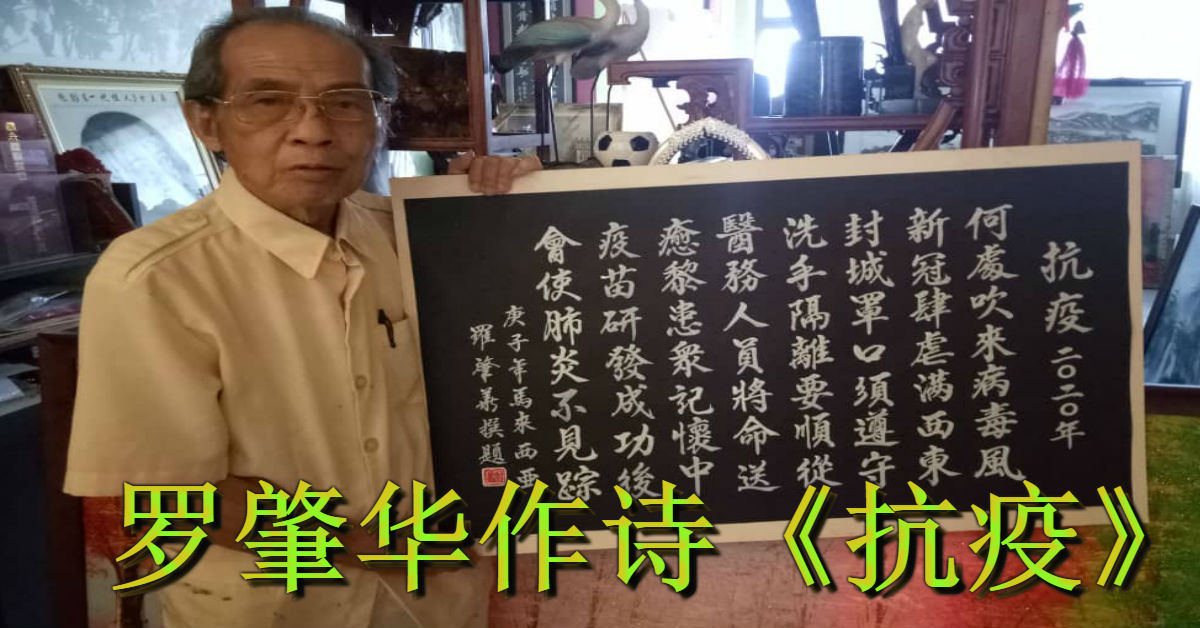 抗疫 二〇二〇年
何處吹來病毒風
新冠肆虐满西東
封城罩口須遵守
洗手隔離要順從
醫務人員將命送
癒黎患衆記懷中
疫苗研發成功後
會使肺炎不見踪
庚子年馬來西亞
羅肇華撰題
罗肇华作诗《抗疫》